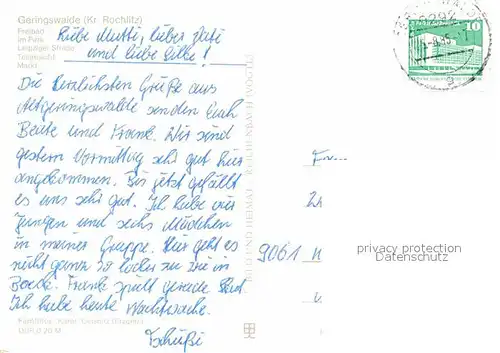 Geringswalde (Kr. Rochlitz)
Freibad
Im Park
Leipziger Straße
Teilansicht
Markt
Liebe Mutti, lieber Vati
und liebe Silke!
Die herzlichsten Grüße aus
Altgeringswalde senden Euch
Beate und Frank. Wir sind
gestern Vormittag sehr gut hier
angekommen. Bis jetzt gefällt
es uns sehr gut. Ich habe vier
Jungen und sechs Mädchen
in meiner Gruppe. Hier geht es
nicht ganz so locker zu wie in
Frank spielt gerade
Ich habe heute Nachtwache.
Tschüßi
BILD UND HEIMAT REICHENBACH
10
9061
privacy protection
Datenschutz